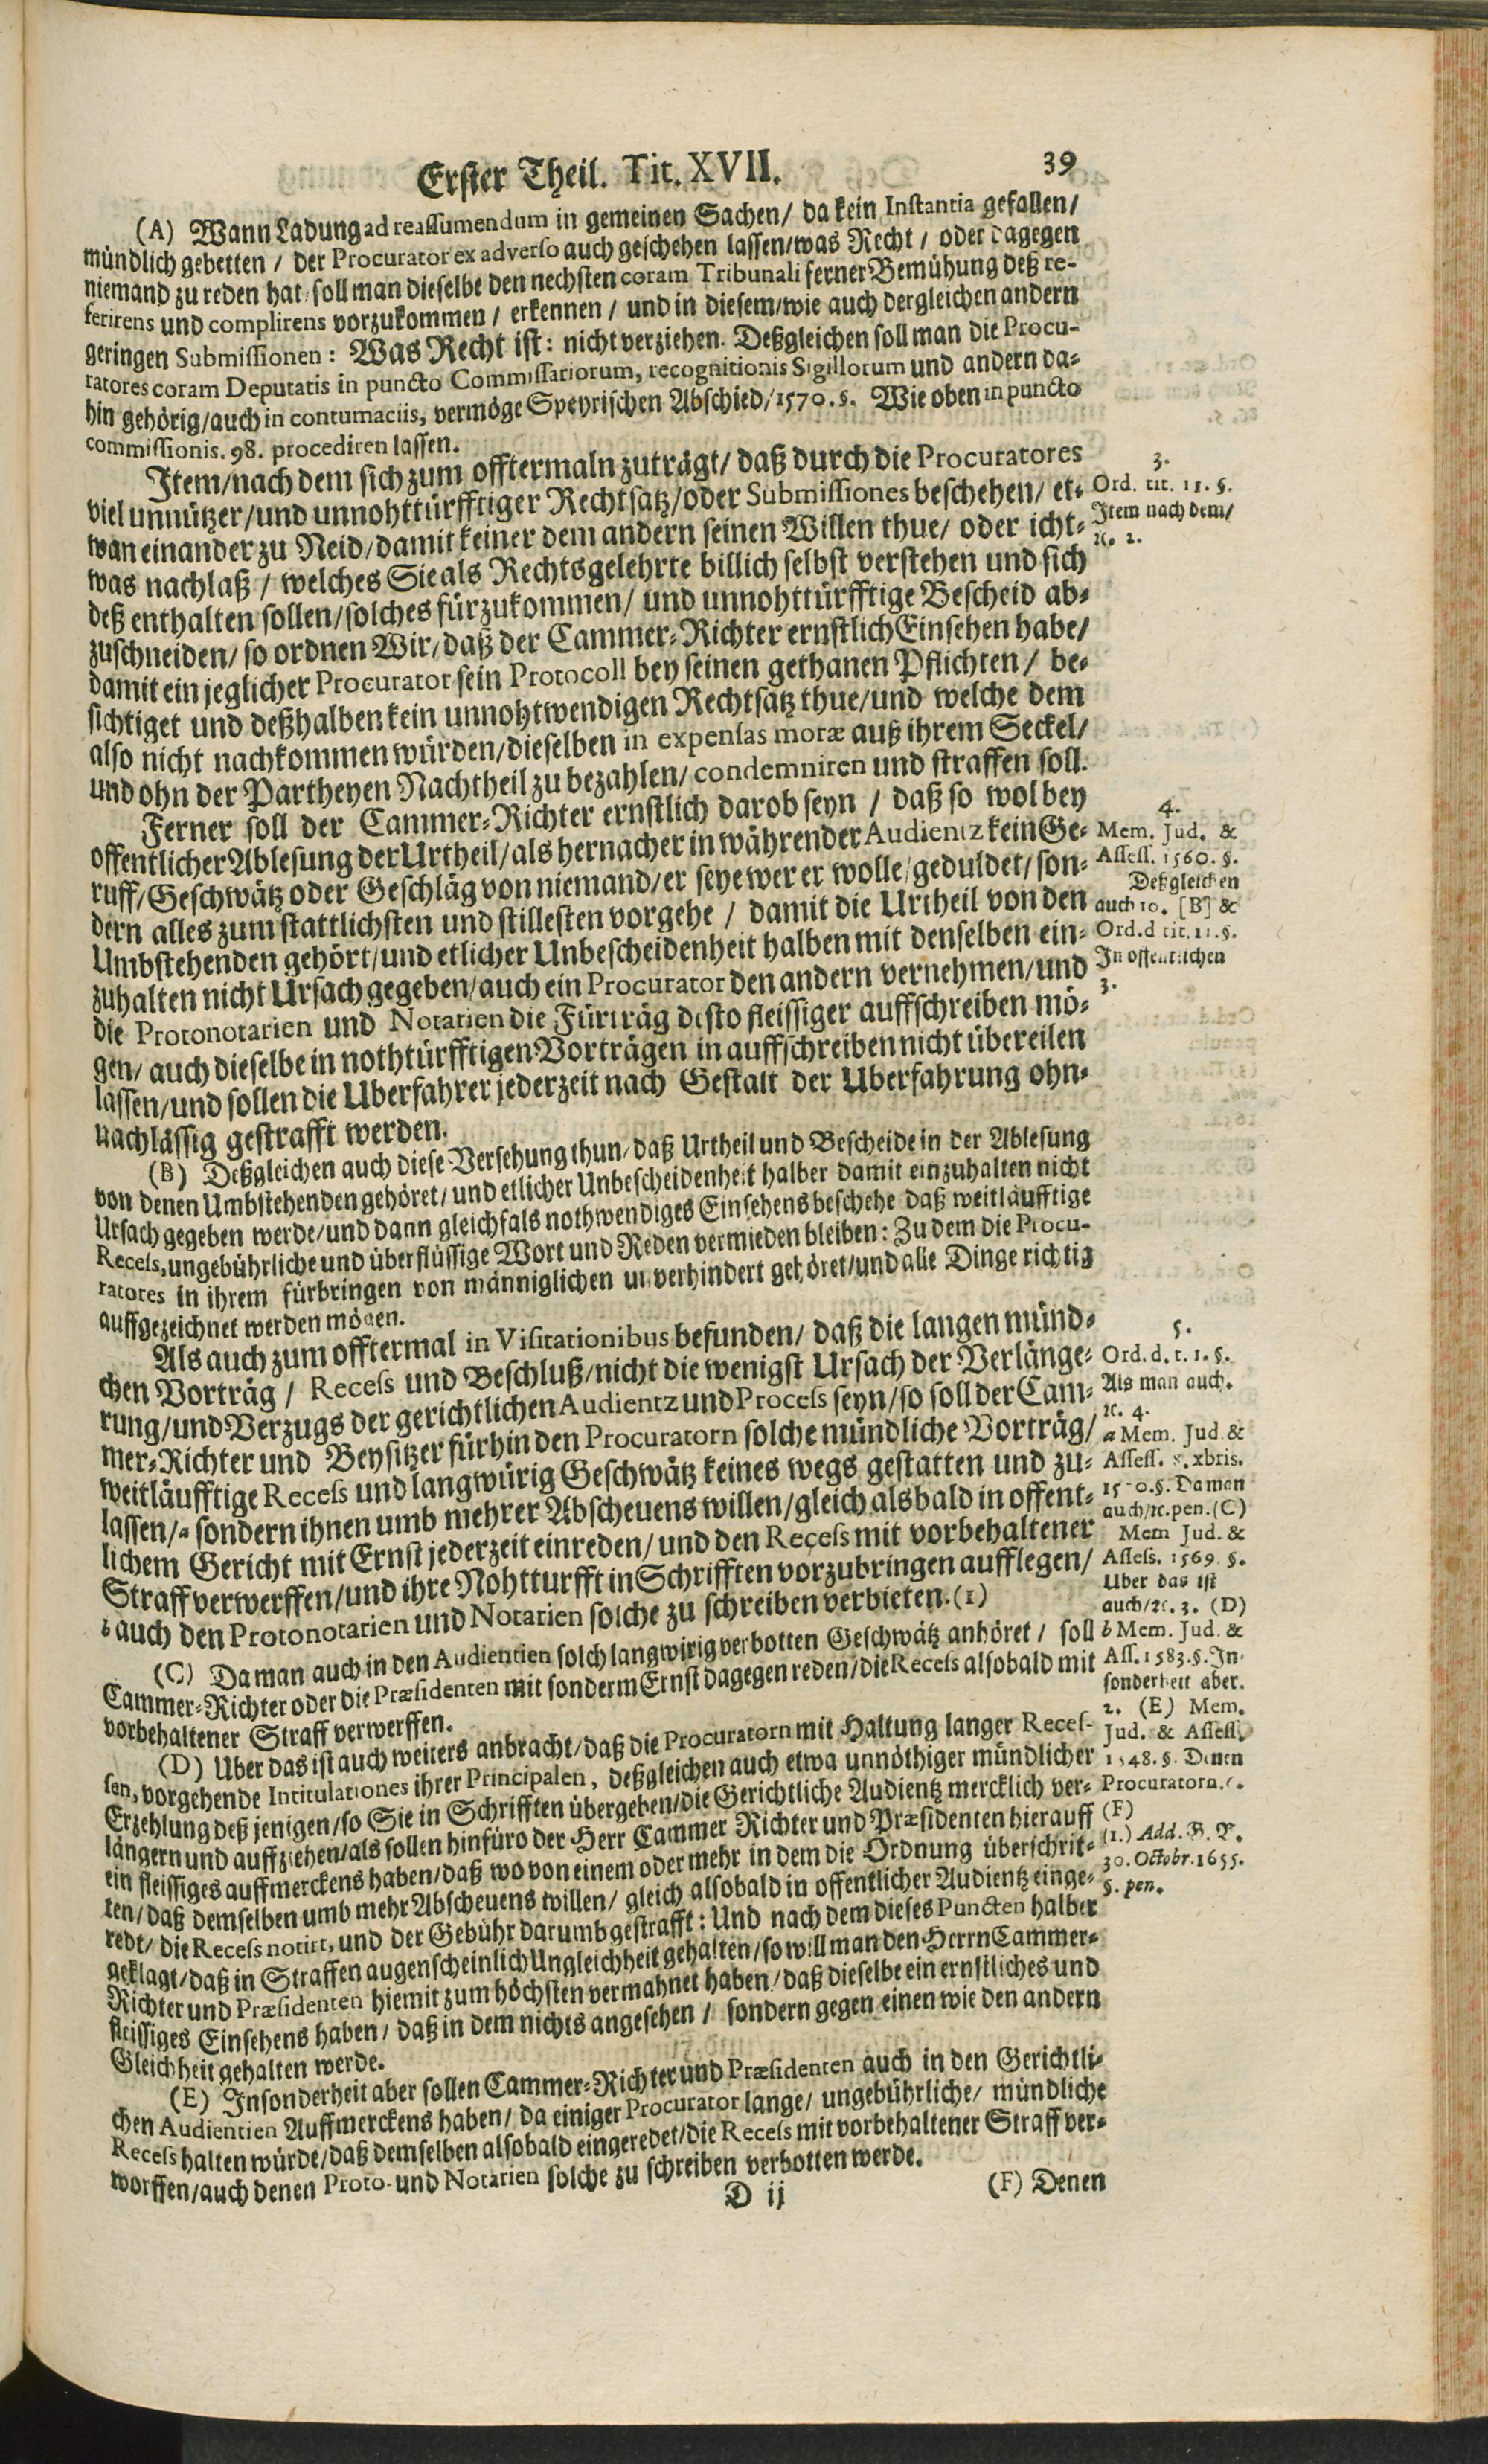 Erster Theil. Tit. XVII. 39
(A) Wann Ladung ad reassumendum in gemeinen Sachen/ da kein Instantia gefallen/
mündlich gebetten / der Procurator ex adverso auch geschehen lassen/was Recht / oder dagegen
niemand zu reden hat/ soll man dieselbe den nechsten coram Tribunali ferner Bemühung deß re-
ferirens und complirens vorzukommen / erkennen / und in diesem/wie auch dergleichen andern
geringen Submissionen: Was Recht ist: nicht verziehen. Deßgleichen soll man die Procu-
ratores coram Deputatis in puncto Commissariorum, recognitionis Sigillorum und andern da-
hin gehörig/auch in contumaciis, vermöge Speyrischen Abschied/1570. §. Wie oben in puncto
commissionis. 98. procediren lassen.
Item/nach dem sich zum offtermaln zuträgt/ daß durch die Procuratores
viel unnützer/und unnohttürfftiger Rechtsatz/oder Submissiones beschehen/ et-
wan einander zu Neid/damit keiner dem andern seinen Willen thue/ oder icht-
was nachlaß / welches Sie als Rechtsgelehrte billich selbst verstehen und sich
deß enthalten sollen/solches fürzukommen/ und unnohttürfftige Bescheid ab-
zuschneiden/ so ordnen Wir/daß der Cammer-Richter ernstlich Einsehen habe/
damit ein jeglicher Procurator sein Protocoll bey seinen gethanen Pflichten / be-
sichtiget und deßhalben kein unnohtwendigen Rechtsatz thue/und welche dem
also nicht nachkommen würden/dieselben in expensas moræ auß ihrem Seckel/
und ohn der Partheyen Nachtheil zu bezahlen/condemniren und straffen soll.
3.
Ord. tit. 11. §.
Item nach dem/
ꝛc. 2.
Ferner soll der Cammer-Richter ernstlich darob seyn / daß so wol bey
offentlicher Ablesung der Urtheil/als hernacher in währender Audientz kein Ge-
ruff/Geschwätz oder Geschläg von niemand/er seye wer er wolle/geduldet/son-
dern alles zum stattlichsten und stillesten vorgehe / damit die Urtheil von den
Umbstehenden gehört/und etlicher Unbescheidenheit halben mit denselben ein-
zuhalten nicht Ursach gegeben/auch ein Procurator den andern vernehmen/und
die Protonotarien und Notarien die Fürträg desto fleissiger auffschreiben mö-
gen/ auch dieselbe in nothtürfftigen Vorträgen in auffschreiben nicht übereilen
lassen/und sollen die Uberfahrer jederzeit nach Gestalt der Uberfahrung ohn-
nachlässig gestrafft werden.
4.
Mem. Jud. &
Assess. 1560. §.
Deßgleichen
auch 10. [B] &
Ord. d tit. 11. §.
In offentlichen
3.
(B) Deßgleichen auch diese Versehung thun/daß Urtheil und Bescheide in der Ablesung
von denen Umbstehenden gehöret/und etlicher Unbescheidenheit halber damit einzuhalten nicht
Ursach gegeben werde/und dann gleichfals nothwendiges Einsehens beschehe daß weitläufftige
Recess, ungebührliche und überflüssige Wort und Reden vermieden bleiben: Zu dem die Procu-
ratores in ihrem fürbringen von männiglichen unverhindert gehöret/und alle Dinge richtig
auffgezeichnet werden mögen.
Als auch zum offtermal in Visitationibus befunden/ daß die langen münd-
chen Vorträg / Recess und Beschluß/nicht die wenigst Ursach der Verlänge-
rung/und Verzugs der gerichtlichen Audientz und Process seyn/so soll der Cam-
mer-Richter und Beysitzer fürhin den Procuratorn solche mündliche Vorträg/
weitläufftige Recess und langwürig Geschwätz keines wegs gestatten und zu-
lassen/a sondern ihnen umb mehrer Abscheuens willen/gleich alsbald in offent-
lichem Gericht mit Ernst jederzeit einreden/und den Recess mit vorbehaltener
Straff verwerffen/und ihre Nohtturfft in Schrifften vorzubringen aufflegen/
b auch den Protonotarien und Notarien solche zu schreiben verbieten.(1)
5.
Ord. d. t. 1. §.
Als man auch.
ꝛc. 4.
a Mem. Jud. &
Assess. xbris.
Da man
auch/ꝛc. pen. (C)
Mem Jud. &
Assess. 1569. §.
Uber das ist
auch/ꝛc. 3. (D)
b Mem. Jud. &
Ass. 1583. §. In-
sonderheit aber.
2. (E) Mem.
Jud. & Assess.
1548. §. Denen
Procuratorn.
(F)
(1.) Add. B. V.
30. Octobr. 1655.
§. pen.
(C) Da man auch in den Audientien solch langwirig verbotten Geschwätz anhöret / soll
Cammer-Richter oder die Præsidenten mit sonderm Ernst dagegen reden/die Recess alsobald mit
vorbehaltener Straff verwerffen.
(D) Uber das ist auch weiters anbracht/daß die Procuratorn mit Haltung langer Reces-
sen, vorgehende Intitulationes ihrer Principalen, deßgleichen auch etwa unnöthiger mündlicher
Erzehlung deß jenigen/so Sie in Schrifften übergeben/die Gerichtliche Audientz mercklich ver-
längern und auffziehen/als sollen hinfüro der Herr Cammer Richter und Præsidenten hierauff
ein fleissiges auffmerckens haben/daß wo von einem oder mehr in dem die Ordnung überschrit-
ten/daß demselben umb mehr Abscheuens willen/ gleich alsobald in offentlicher Audientz einge-
redt/ die Recess notirt, und der Gebühr darumb gestrafft: Und nach dem dieses Puncten halber
geklagt/daß in Straffen augenscheinlich Ungleichheit gehalten/so will man den Herrn Cammer-
Richter und Præsidenten hiemit zum höchsten vermahnet haben/daß dieselbe ein ernstliches und
fleissiges Einsehens haben/ daß in dem nichts angesehen / sondern gegen einen wie den andern
Gleichheit gehalten werde.
(E) Insonderheit aber sollen Cammer-Richter und Præsidenten auch in den Gerichtli-
chen Audientien Auffmerckens haben/ da einiger Procurator lange/ ungebührliche/ mündliche
Recess halten würde/daß demselben alsobald eingeredet/die Recess mit vorbehaltener Straff ver-
worffen/auch denen Proto- und Notarien solche zu schreiben verbotten werde.
D ij (F) Denen